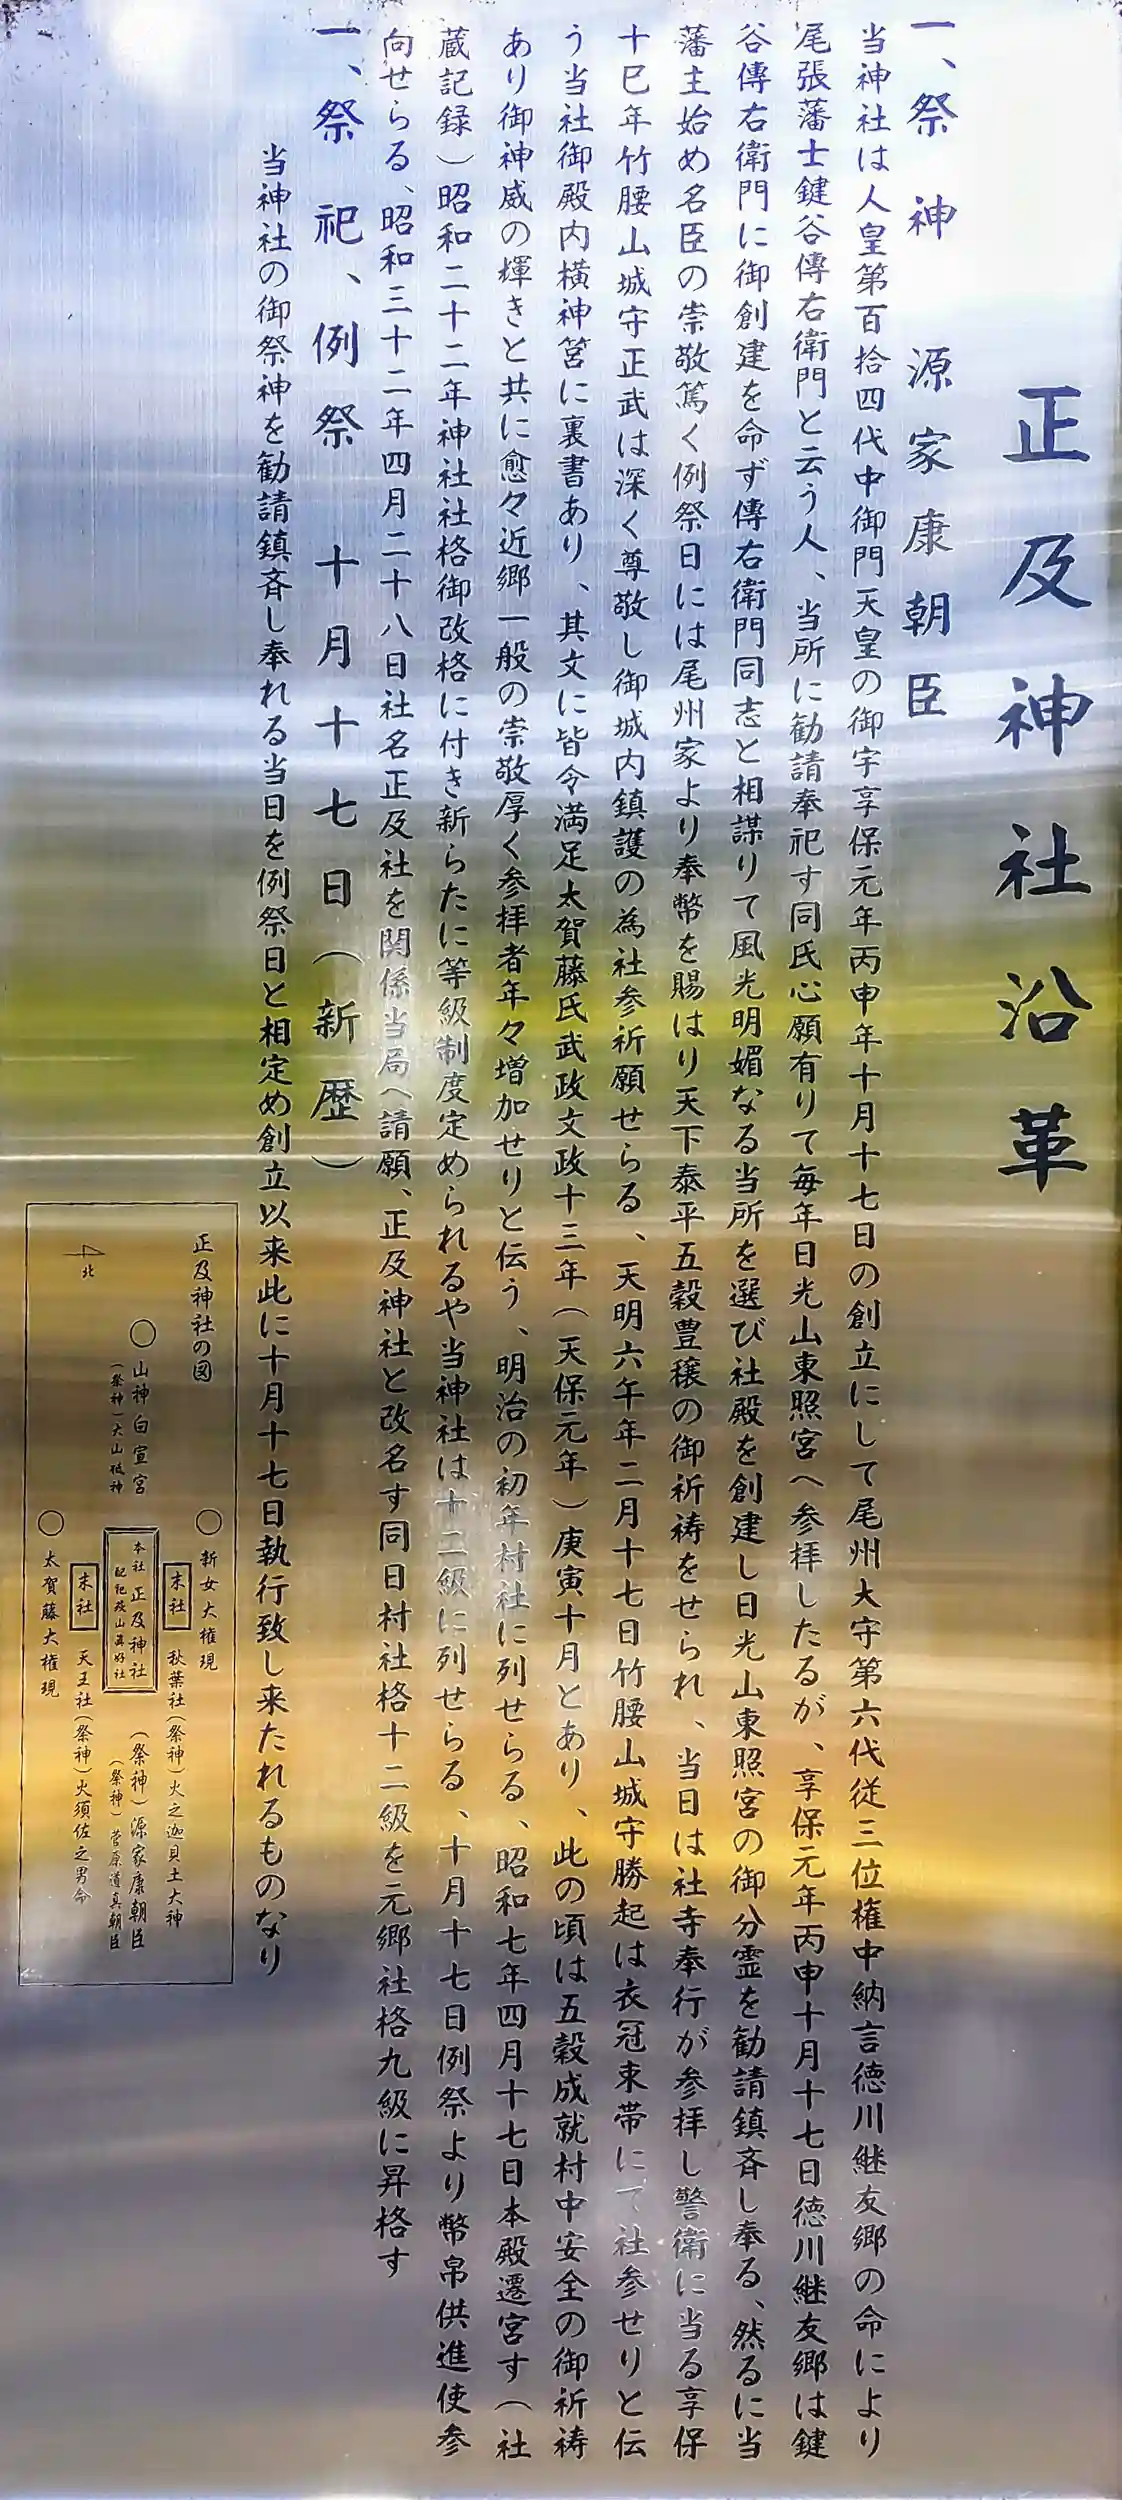 正及神社沿革
一、祭神 源家康朝臣
当神社は人皇第百拾四代中御門天皇の御宇享保元年丙申年十月十七日の創立にして尾州大守第六代従三位権中納言徳川継友郷の命により
尾張藩士鍵谷傳右衛門と云う人、当所に勧請奉祀す同氏心願有りて毎年日光山東照宮へ参拝したるが、享保元年丙申十月十七日徳川継友郷は鍵
谷傳右衛門に御創建を命ず傳右衛門同志と相謀りて風光明媚なる当所を選び社殿を創建し日光山東照宮の御分霊を勧請鎮斉し奉る、然るに当
藩主始め名臣の崇敬篤く例祭日には尾州家より奉幣を賜はり天下泰平五穀豊穣の御祈祷をせられ、当日は社寺奉行が参拝し警衛に当る享保
十巳年竹腰山城守正武は深く尊敬し御城内鎮護の為社参祈願せらる、天明六午年二月十七日竹腰山城守勝起は衣冠束帯にて社参せりと伝
う当社御殿内横神筥に裏書あり、其文に皆令満足太賀藤氏武政文政十三年(天保元年)庚寅十月とあり、此の頃は五穀成就村中安全の御祈祷
あり御神威の輝きと共に愈々近郷一般の崇敬厚く参拝者年々増加せりと伝う、明治の初年村社に列せらる、昭和七年四月十七日本殿遷宮す(社
蔵記録)昭和二十二年神社社格御改格に付き新らたに等級制度定められるや当神社は十二級に列せらる、十月十七日例祭より幣帛供進使参
向せらる、昭和三十二年四月二十八日社名正及社を関係当局へ請願、正及神社と改名す同日村社格十二級を元郷社格九級に昇格す
一、祭祀、例祭 十月十七日(新歴)
当神社の御祭神を勧請鎮斉し奉れる当日を例祭日と相定め創立以来此に十月十七日執行致し来たれるものなり
正及神社の図
北
山神白宣宮
(祭神)大山祇神
新女大権現
末社 秋葉社(祭神)火之迦具土大神
本社 正及神社 (祭神)源家康朝臣
(祭神)菅原道真朝臣
末社 天王社(祭神)火須佐之男命
太賀藤大権現